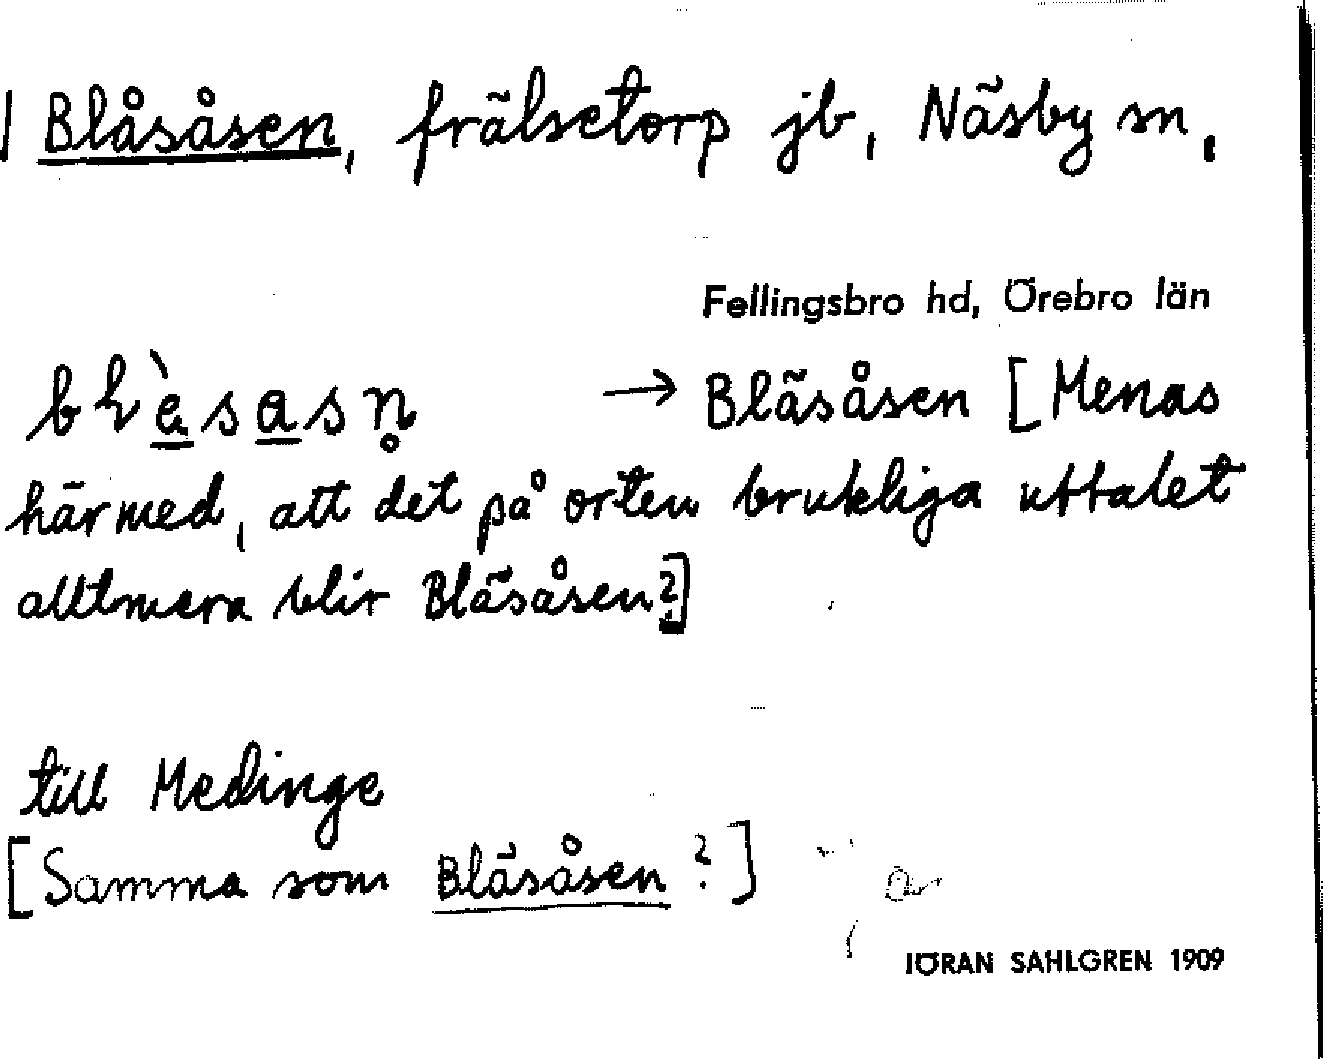 Blåsåsen, frälsetorp jb, Näsby sn,
Fellingsbro hd, Örebro län
→ Bläsåsen [Menas
härmed, att det på orten brukliga uttalet
alltmera blir Bläsåsen?]
till Medinge
[Samma som Bläsåsen ?]
JÖRAN SAHLGREN 1909